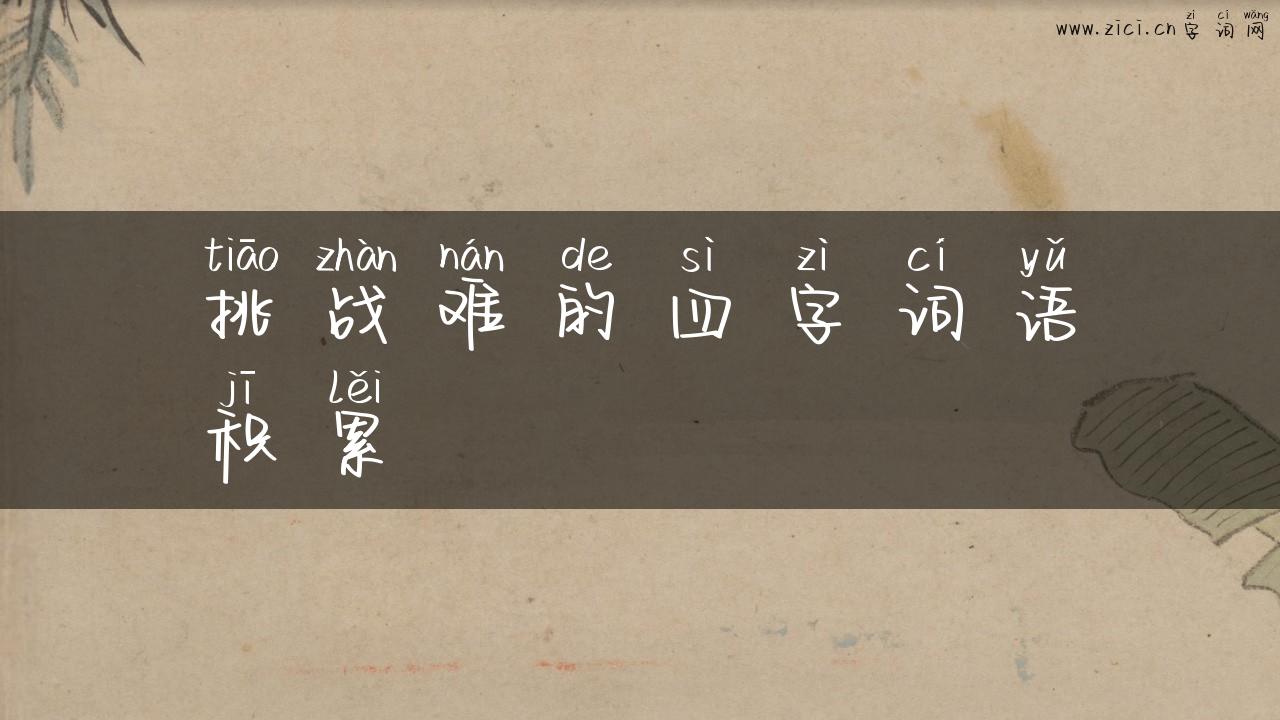 zì cí wǎng
www.zici.cn 字词网
tiāo zhàn nán de sì zì cí yǔ
挑战难的四字词语
jī lěi
积累